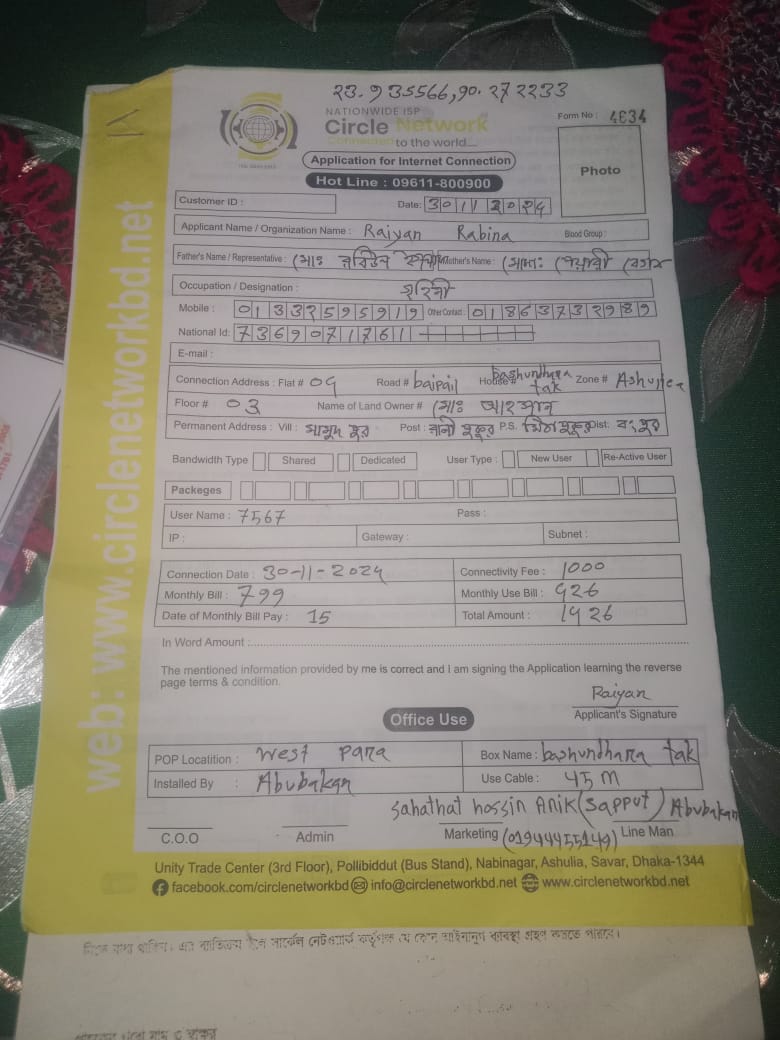 23.935566,90.272233
NATIONWIDE ISP
Circle Network
Connected to the world....
Form No : 4634
Application for Internet Connection
Hot Line : 09611-800900
Photo
Customer ID :
Date: 30112024
Applicant Name / Organization Name : Raiyan Rabina Blood Group :
Father's Name / Representative : মোঃ রবিউল Mother's Name : মোসাঃ
Occupation / Designation : গৃহিনী
Mobile : 01332595919 Other Contact : 01863732989
National Id: 7369071761
E-mail :
Connection Address : Flat # 09 Road # baipail House # bashundhara tak Zone # Ashuliea
Floor # 03 Name of Land Owner # মোঃ আরমান
Permanent Address : Vill : Post : রানী পুকুর P.S. মিঠাপুকুর Dist: রংপুর
Bandwidth Type Shared Dedicated User Type : New User Re-Active User
Packeges
User Name : 7567 Pass :
IP : Gateway : Subnet :
Connection Date : 30-11-2024 Connectivity Fee : 1000
Monthly Bill : 799 Monthly Use Bill : 926
Date of Monthly Bill Pay : 15 Total Amount : 1926
In Word Amount :
The mentioned information provided by me is correct and I am signing the Application learning the reverse
page terms & condition.
Raiyan
Applicant's Signature
Office Use
POP Locatition : West Para Box Name : bashundhara tak
Installed By : Abubakar Use Cable : 45 m
Sahathat hossin Anik (Sapput) Abubakar
C.O.O Admin Marketing (01944455149) Line Man
Unity Trade Center (3rd Floor), Pollibiddut (Bus Stand), Nabinagar, Ashulia, Savar, Dhaka-1344
facebook.com/circlenetworkbd info@circlenetworkbd.net www.circlenetworkbd.net
web: www.circlenetworkbd.net